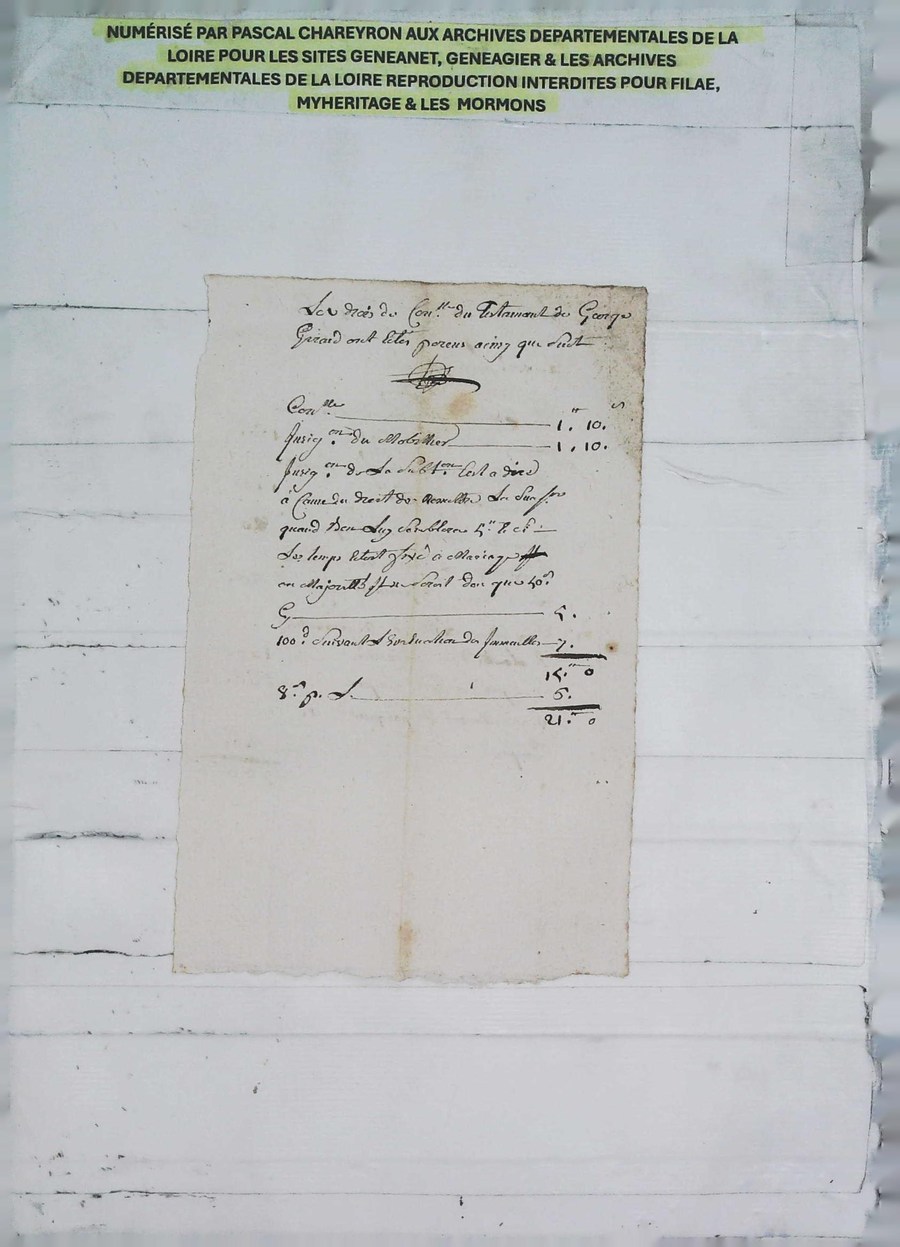 NUMÉRISÉ PAR PASCAL CHAREYRON AUX ARCHIVES DEPARTEMENTALES DE LA
LOIRE POUR LES SITES GENEANET, GENEAGIER & LES ARCHIVES
DEPARTEMENTALES DE LA LOIRE REPRODUCTION INTERDITES POUR FILAE,
MYHERITAGE & LES MORMONS
Les drois de Con.lle du Testament de George
Girard ont Etés perceus ainsy que Suit
Con.lle 1." 10.s
Insig.on du Mobillier 1. 10.
Insig.on de La Subt.on C'est a dire
à Cause du droit de La
quand Bon Luy Semblera
Le temps Etant fixé à Mariage
ou Majorité Il ne Seroit dou que 50s
Cy 5.
100.e Suivant L'Evaluation des Immeubles 7.
15." 0
8.s p. L. 6.
21." 0